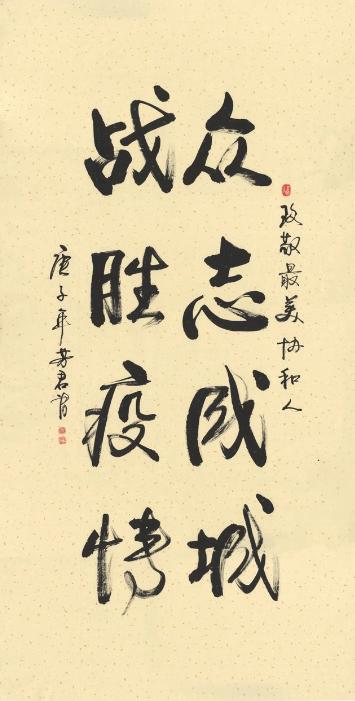 致敬最美协和人
众志成城
战胜疫情
庚子年芳君书